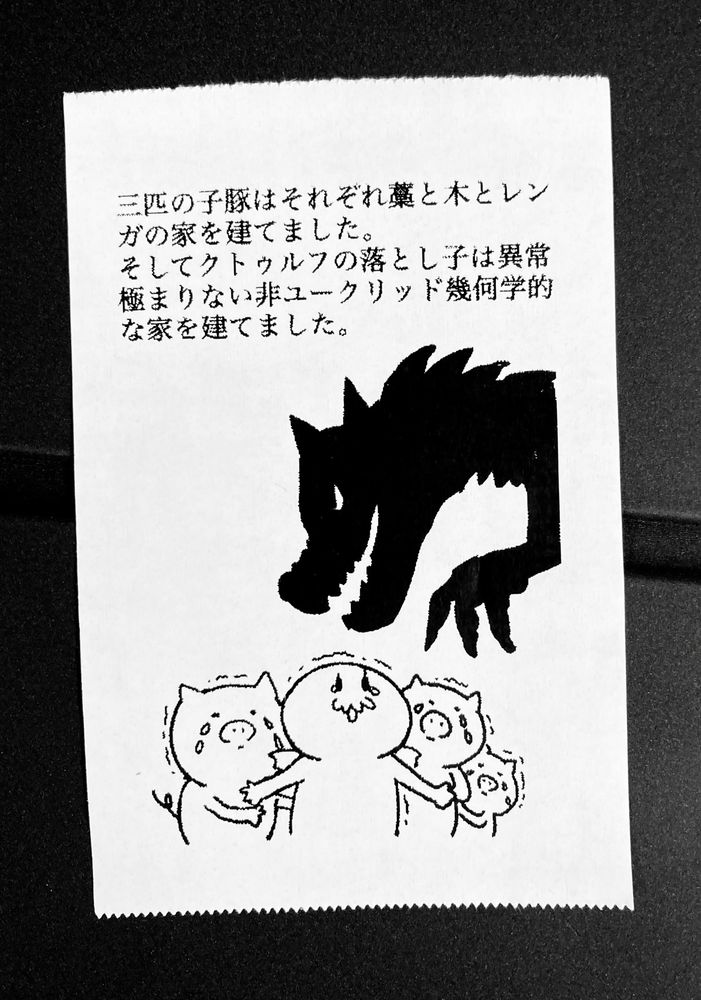 三匹の子豚はそれぞれ藁と木とレン
ガの家を建てました。
そしてクトゥルフの落とし子は異常
極まりない非ユークリッド幾何学的
な家を建てました。